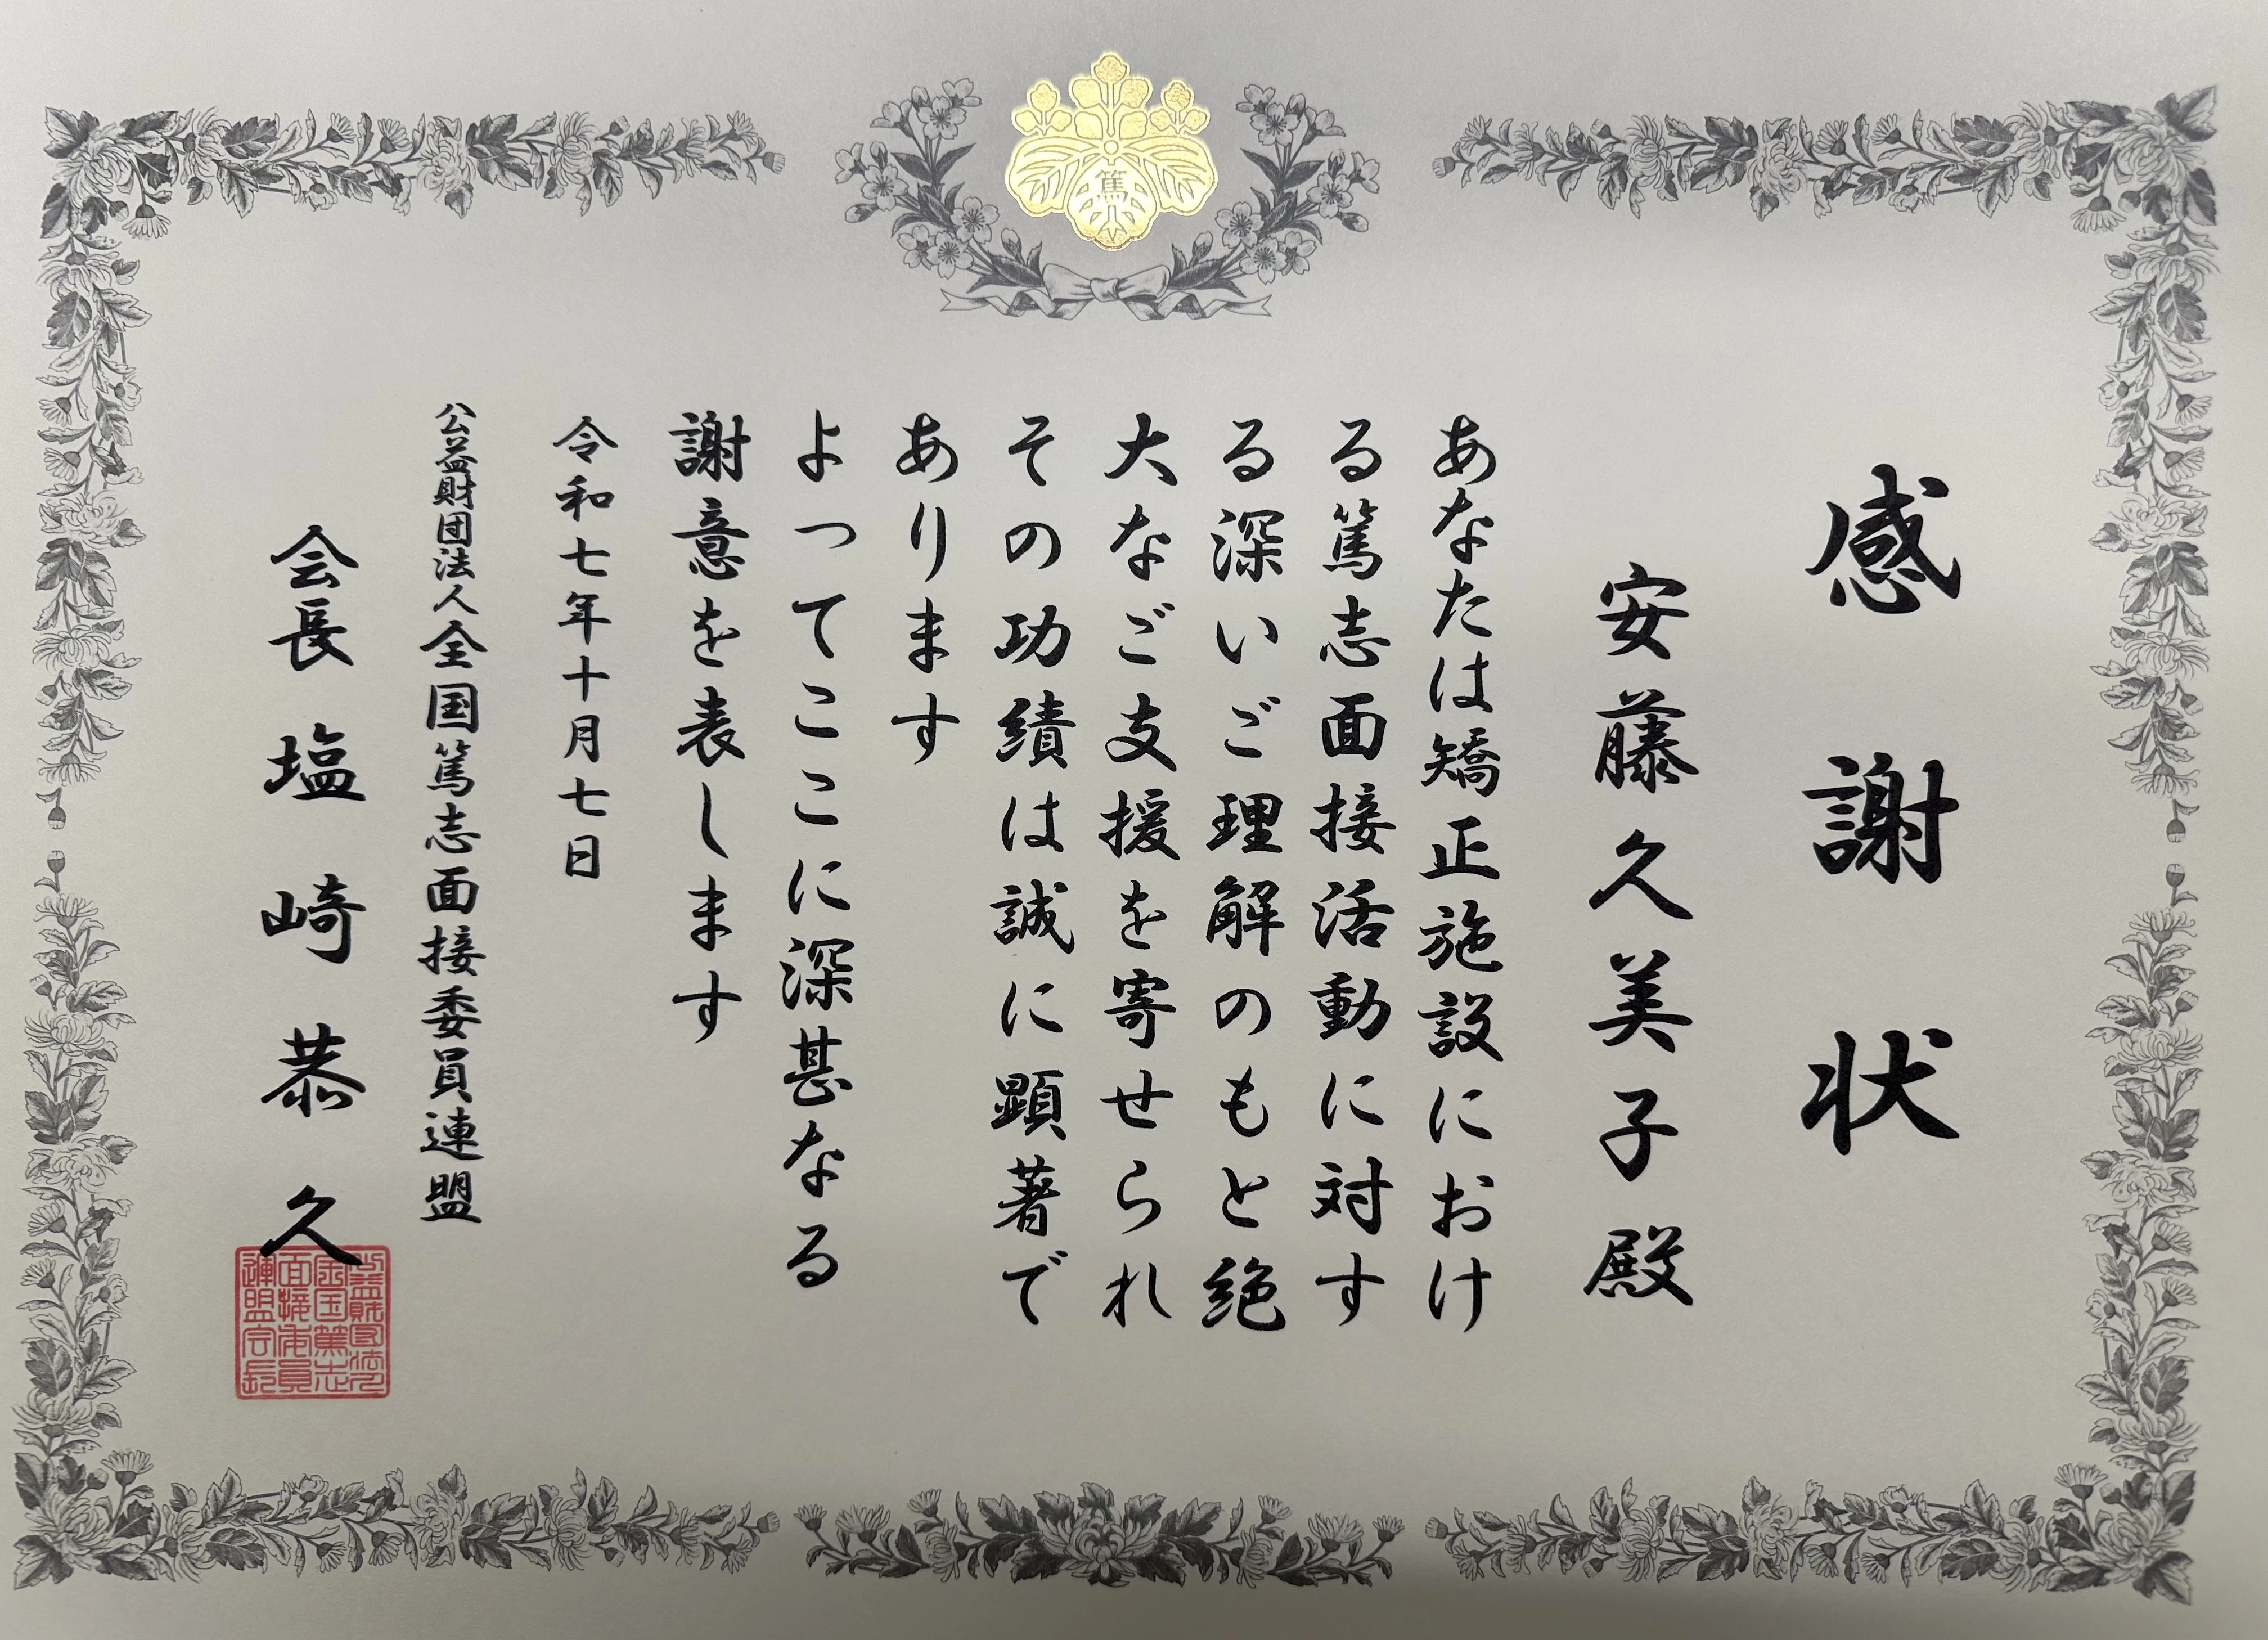 篤
感謝状
安藤久美子殿
あなたは矯正施設におけ
る篤志面接活動に対す
る深いご理解のもと絶
大なご支援を寄せられ
その功績は誠に顕著で
あります
よってここに深甚なる
謝意を表します
令和七年十月七日
公益財団法人全国篤志面接委員連盟
会長 塩崎恭久
公益財団法人
全国篤志
面接委員
連盟会長